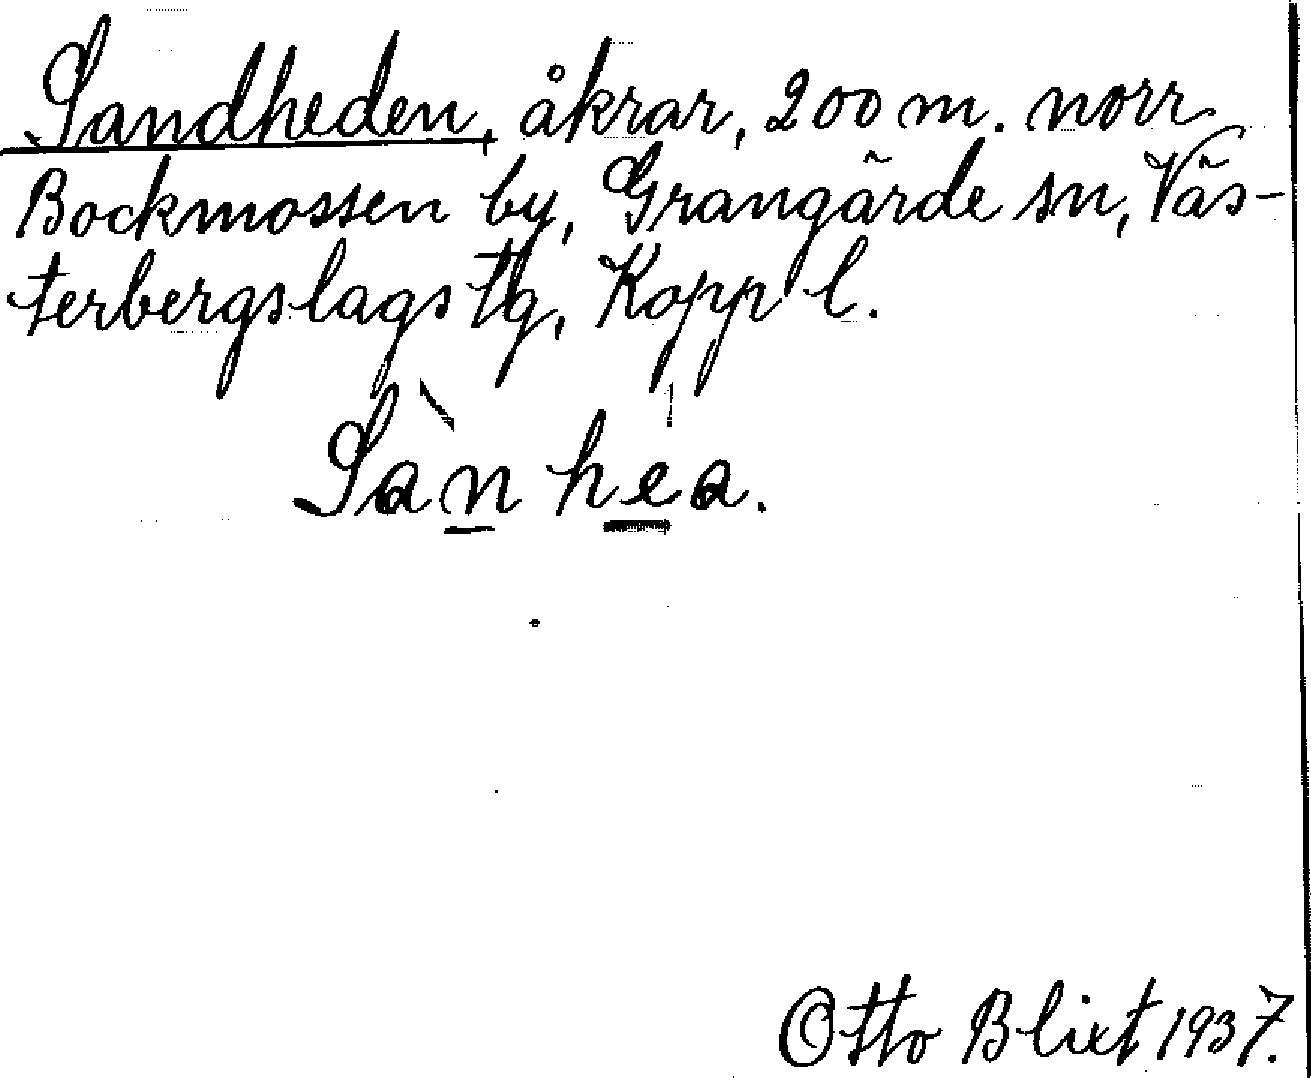 Sandheden, åkrar, 200 m. norr
Bockmossen by, Grangärde sn, Väs-
terbergslags tg, Kopp l.
Sànhéa.
Otto Blixt 1937.